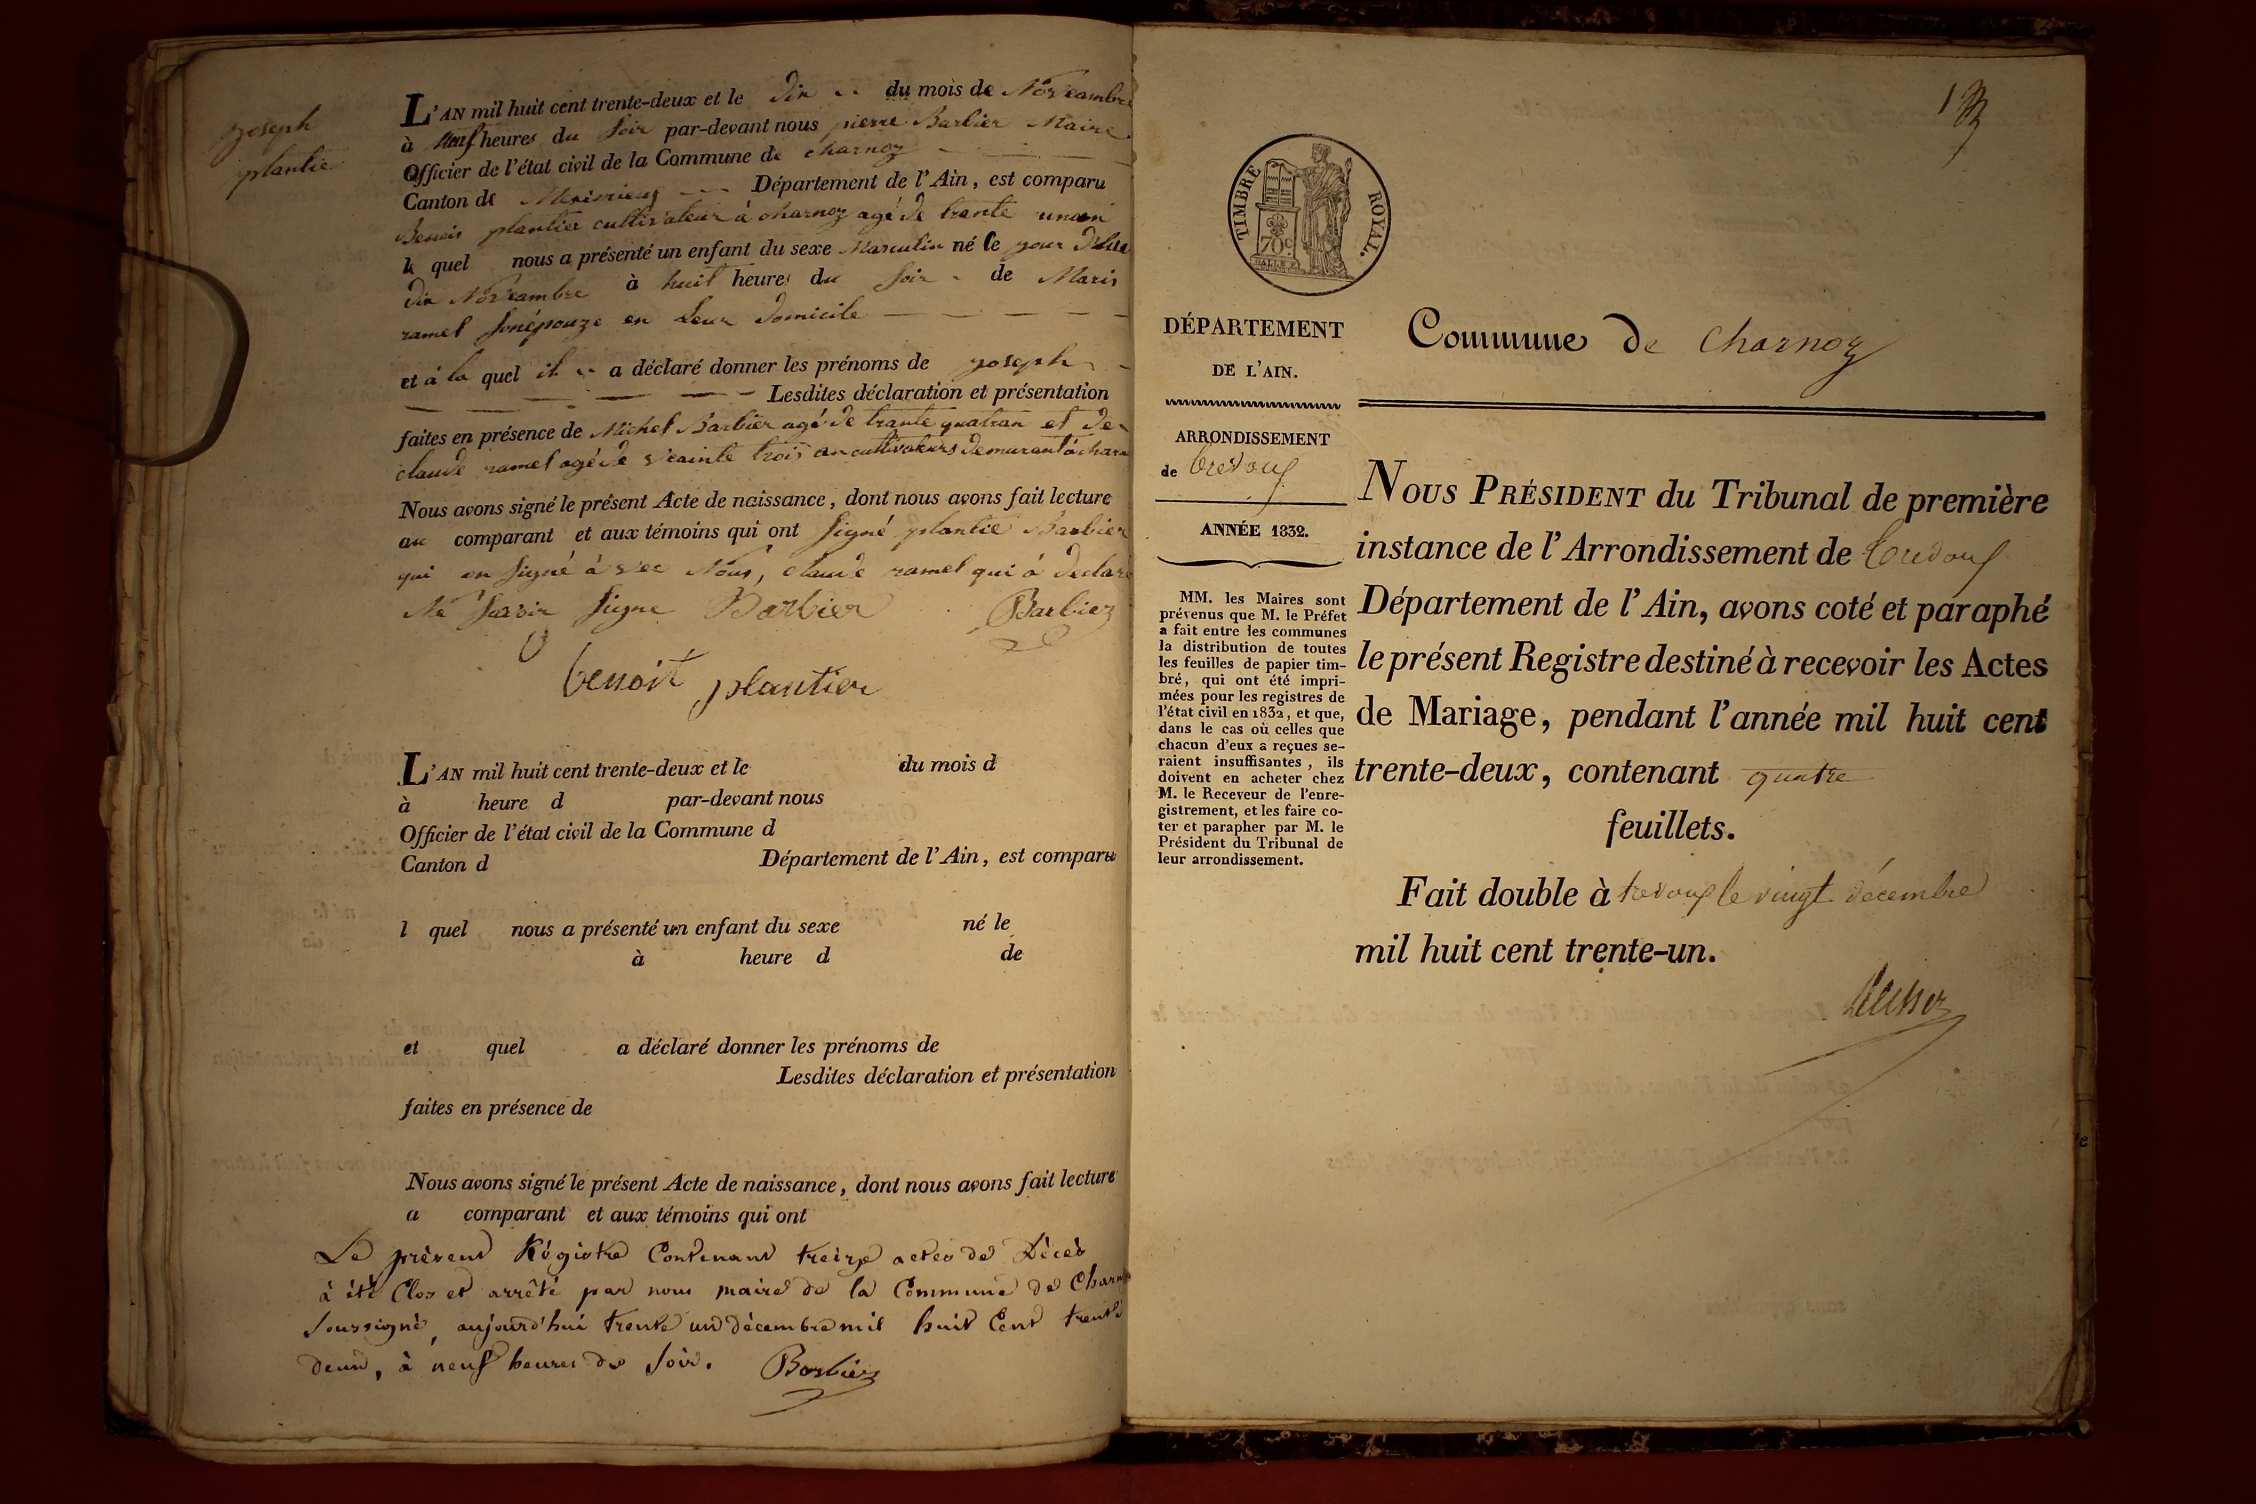 joseph
plantie
L'AN mil huit cent trente-deux et le dix du mois de Noveambre
à Neuf heures du soir par-devant nous pierre Barbier Maire
Officier de l'état civil de la Commune de charnoz
Canton de Meximieux Département de l'Ain, est comparu
Benois plantier cultivateur à charnoz agé de trante unan
le quel nous a présenté un enfant du sexe Masculin né le jour
dix Noveambre à huit heures du soir de Marie
ramel son épouze en Leur domicile
et à la quel il a déclaré donner les prénoms de joseph
Lesdites déclaration et présentation
faites en présence de Michel Barbier agé de trante quatran et de
claude ramel agé de veainte trois an cultivateurs demurant à charn
Nous avons signé le présent Acte de naissance, dont nous avons fait lecture
au comparant et aux témoins qui ont signé plantie Barbier
qui on signé à vec Nous, claude ramel qui à declaré
Ne savoir signe Barbier Barbier
benoit plantier
L'AN mil huit cent trente-deux et le du mois d
à heure d par-devant nous
Officier de l'état civil de la Commune d
Canton d Département de l'Ain, est comparu
l quel nous a présenté un enfant du sexe né le
à heure d de
et quel a déclaré donner les prénoms de
Lesdites déclaration et présentation
faites en présence de
Nous avons signé le présent Acte de naissance, dont nous avons fait lecture
a comparant et aux témoins qui ont
Le présent Régistre Contenant treize actes de Décès
à été Clos et arrêté par nous maire de la Commune de Charn
soussigné, aujourd'hui trente un décembre mil huit Cent trente
deux, à neuf heures du soir. Barbier
TIMBRE ROYAL.
70c
DÉPARTEMENT
DE L'AIN.
Commune de charnoz
ARRONDISSEMENT
de trevoux
ANNÉE 1832.
MM. les Maires sont
prévenus que M. le Préfet
a fait entre les communes
la distribution de toutes
les feuilles de papier tim-
bré, qui ont été impri-
mées pour les registres de
l'état civil en 1832, et que,
dans le cas où celles que
chacun d'eux a reçues se-
raient insuffisantes, ils
doivent en acheter chez
M. le Receveur de l'enre-
gistrement, et les faire co-
ter et parapher par M. le
Président du Tribunal de
leur arrondissement.
NOUS PRÉSIDENT du Tribunal de première
instance de l'Arrondissement de trevoux
Département de l'Ain, avons coté et paraphé
le présent Registre destiné à recevoir les Actes
de Mariage, pendant l'année mil huit cent
trente-deux, contenant quatre
feuillets.
Fait double à trevoux le vingt décembre
mil huit cent trente-un.